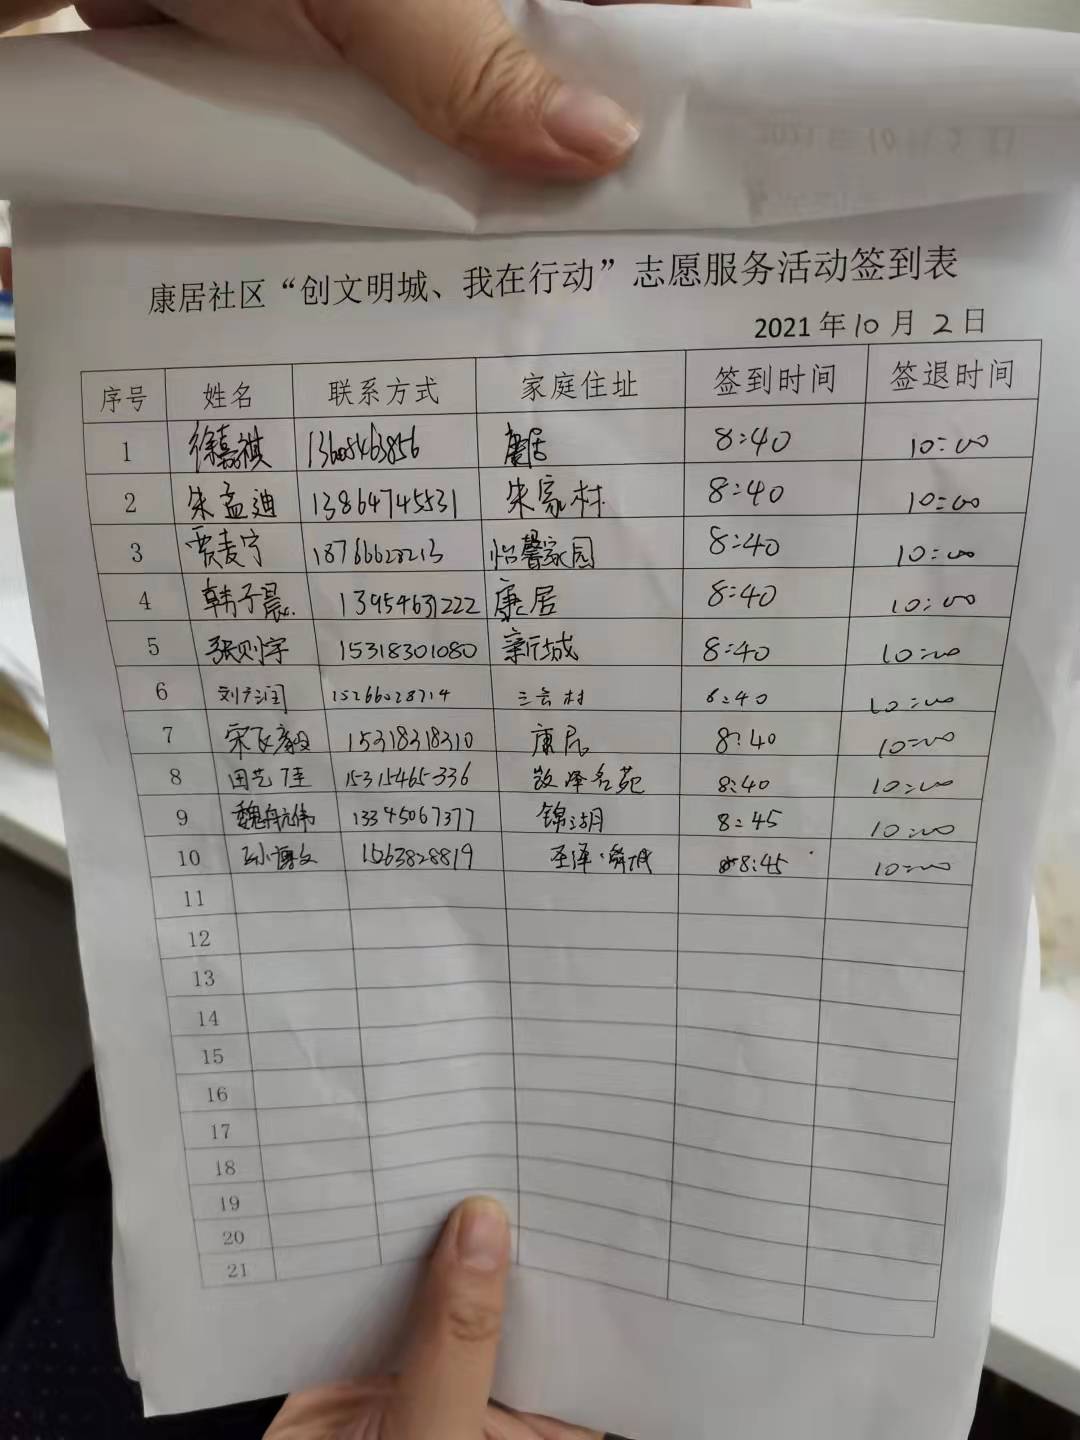 康居社区“创文明城、我在行动”志愿服务活动签到表
2021年10月2日
序号 姓名 联系方式 家庭住址 签到时间 签退时间
1 徐嘉祺 13608463856 康居 8:40 10:00
2 朱孟迪 13864745531 朱家村 8:40 10:00
3 贾麦宁 18766628213 怡馨家园 8:40 10:00
4 韩子晨 13954631222 康居 8:40 10:00
5 张则宇 15318301080 新城 8:40 10:00
6 15266028714 村 8:40 10:00
7 宋飞毅 15318318310 康居 8:40 10:00
8 田艺佳 15315465336 名苑 8:40 10:00
9 魏航伟 13345067377 锦湖 8:45 10:00
10 孙博文 1563828819 圣泽·舜城 8:45 10:00
11
12
13
14
15
16
17
18
19
20
21